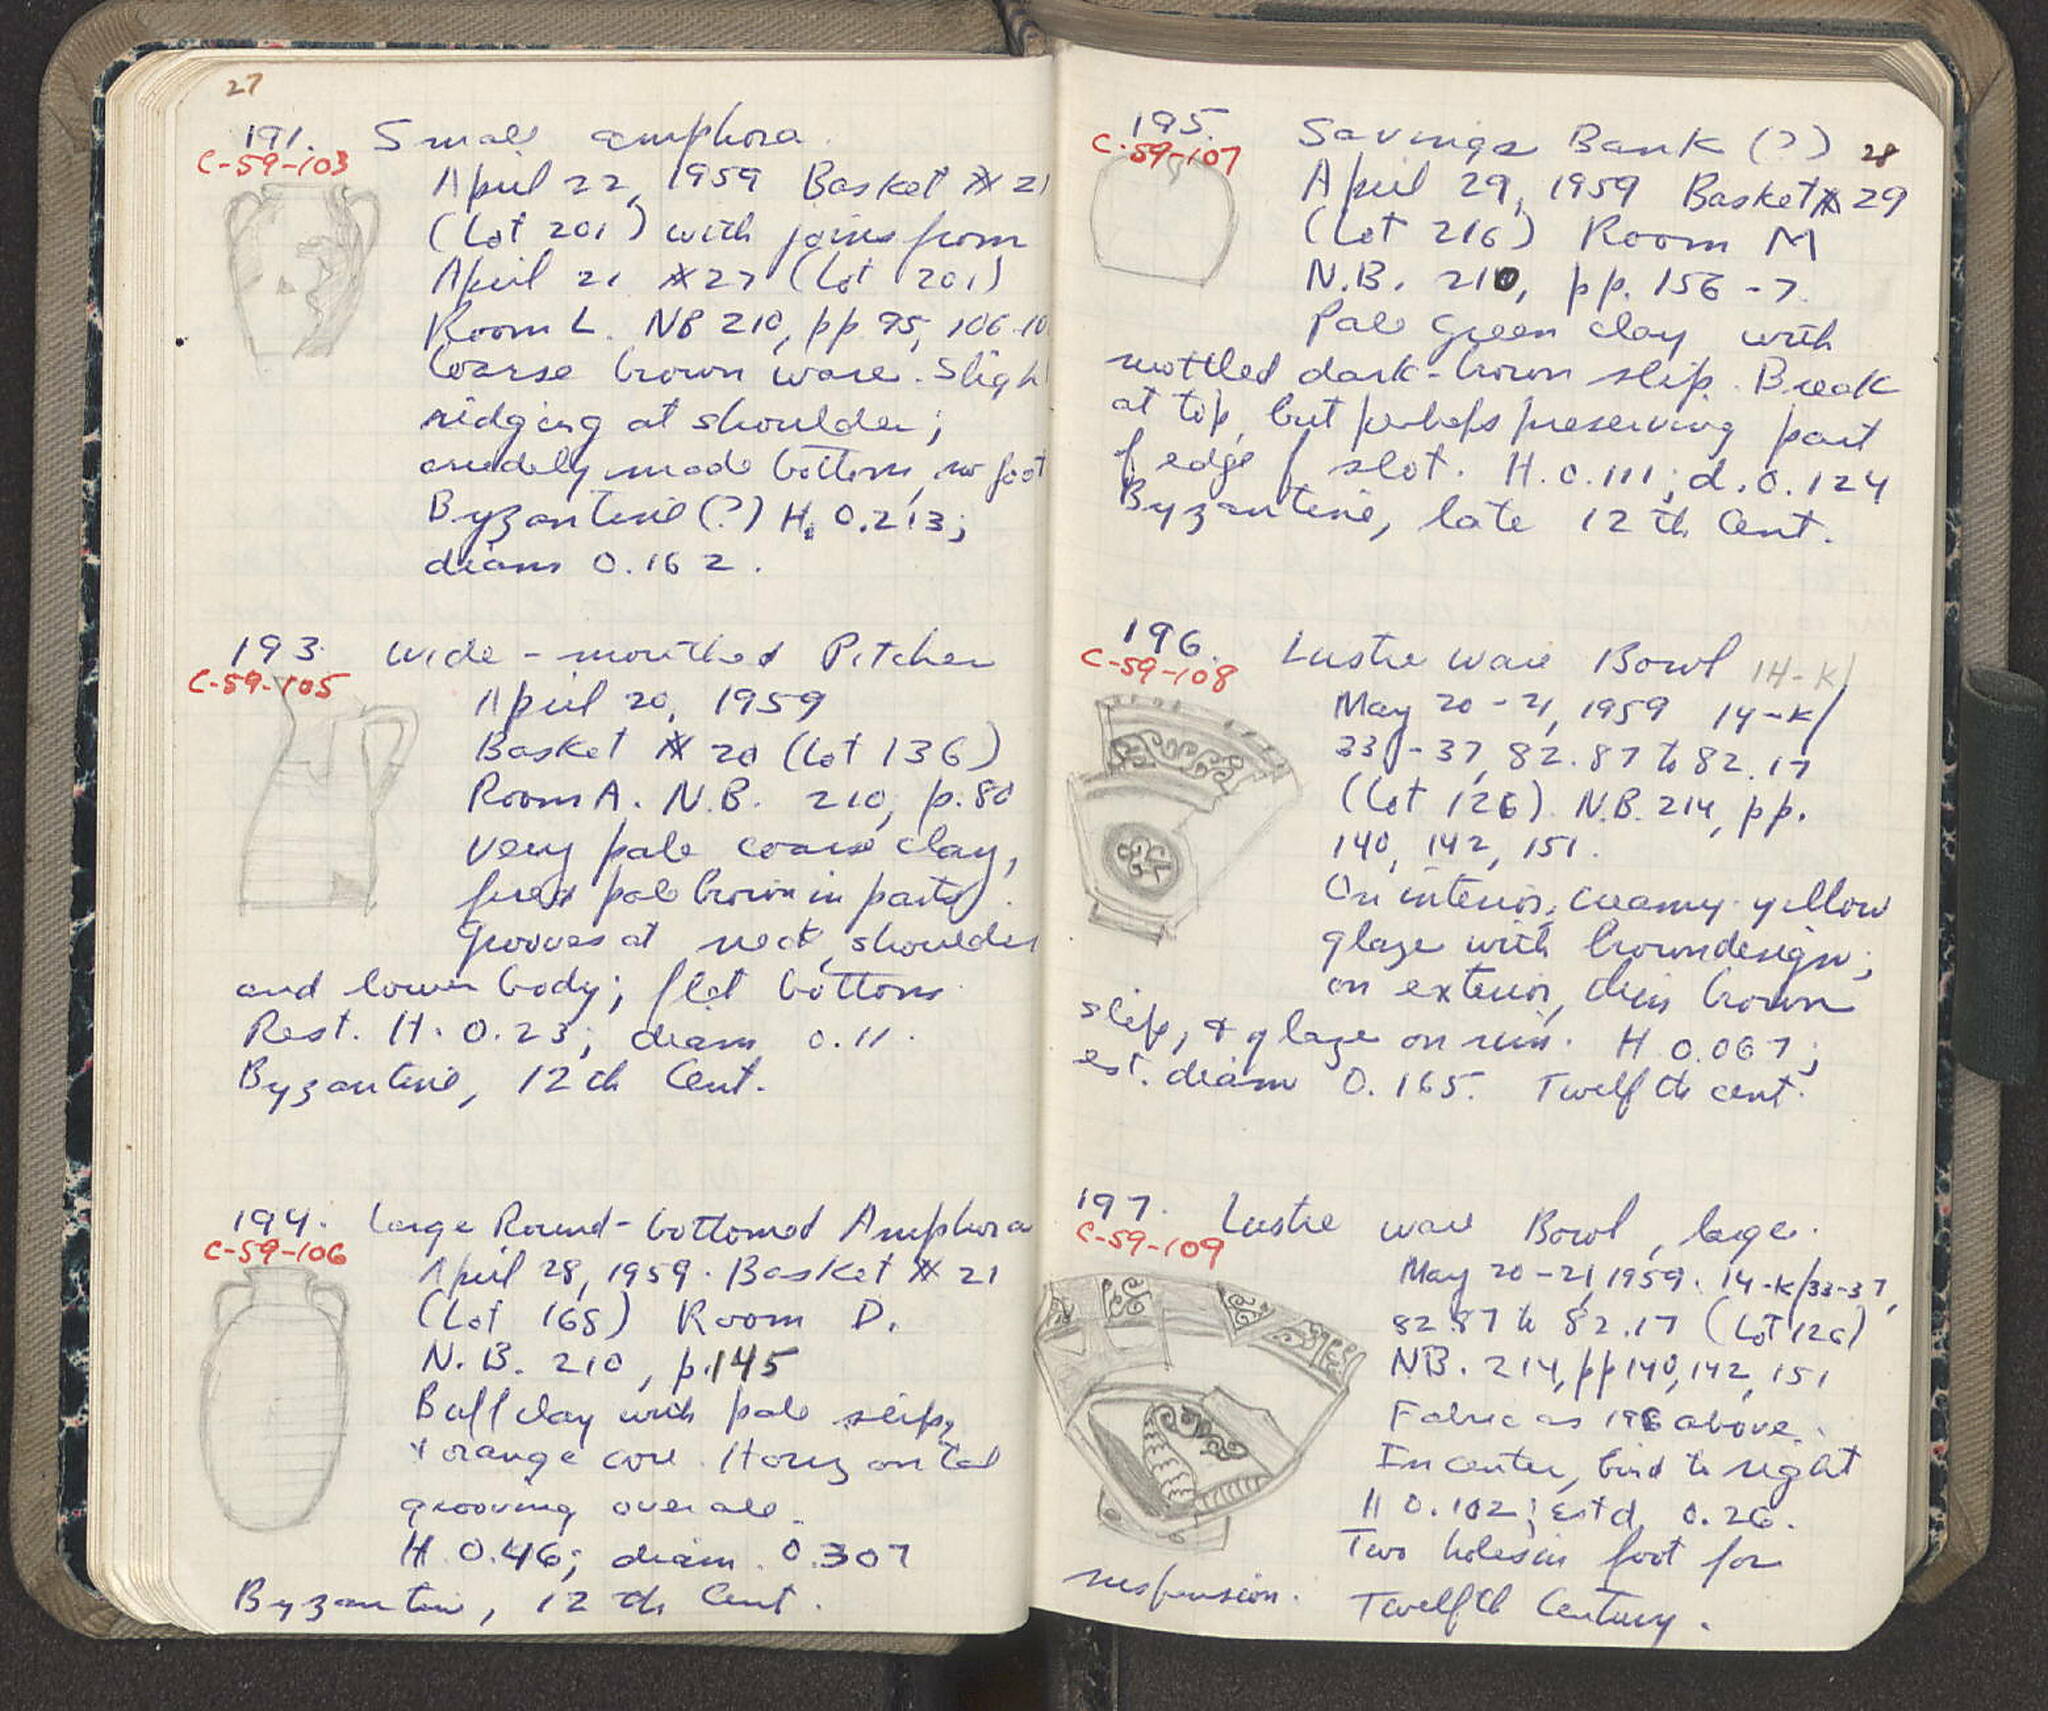 27
191. Small amphora.
C-59-103
April 22, 1959 Basket # 21
(Lot 201) with joins from
April 21 #27 (Lot 201)
Room L. NB 210, pp 95, 106-10
Coarse brown ware. Sligh
ridging at shoulder;
crudely made bottom, no foot
Byzantine (?) H. 0.213;
diam 0.162.
193. Wide-mouthed Pitcher
C-59-105
April 20, 1959
Basket # 20 (Lot 136)
Room A. N.B. 210, p. 80
Very pale coarse clay,
fired pale brown in parts.
Grooves at neck, shoulder
and lower body; flat bottom.
Rest. H. 0.23; diam 0.11.
Byzantine, 12th Cent.
194. Large Round-bottomed Amphora
C-59-106
April 28, 1959. Basket # 21
(Lot 168) Room D.
N.B. 210, p. 145
Buff clay with pale slip,
+ orange core. Horizontal
grooving over all.
H. 0.46; diam. 0.307
Byzantine, 12th Cent.
195. Savings Bank (?) 28
C-59-107
April 29, 1959 Basket # 29
(Lot 216) Room M
N.B. 210, pp. 156-7.
Pale green clay with
mottled dark-brown slip. Break
at top, but perhaps preserving part
of edge of slot. H. 0.111; d. 0.124
Byzantine, late 12th Cent.
196. Lustre ware Bowl 14-K/
C-59-108
May 20-21, 1959 14-K/
33-37, 82.87 to 82.17
(Lot 126). N.B. 214, pp.
140, 142, 151.
On interior, creamy-yellow
glaze with brown design;
on exterior, thin brown
slip, + glaze on rim. H 0.067;
est. diam 0.165. Twelfth cent.
197. Lustre ware Bowl, large.
C-59-109
May 20-21, 1959. 14-K/33-37,
82.87 to 82.17 (Lot 126)
NB. 214, pp 140, 142, 151
Fabric as 196 above.
In center, bird to right
H 0.102; est d. 0.26.
Two holes in foot for
suspension. Twelfth Century.